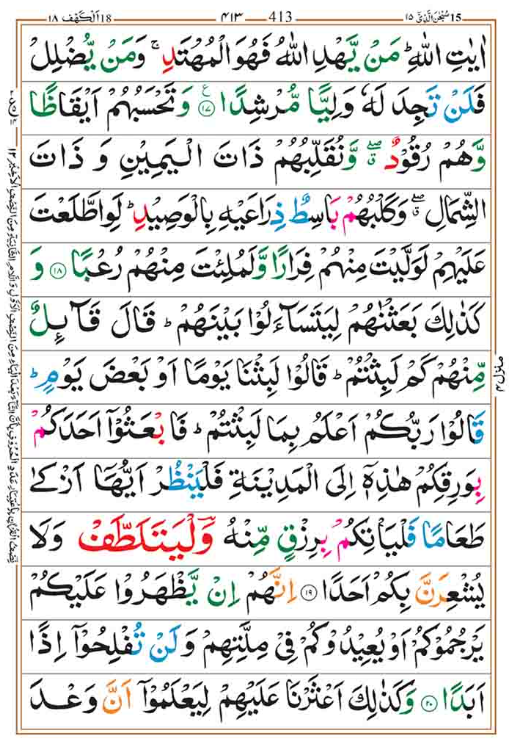 15 سُبْحٰنَ الَّذِیْٓ ١٥ 413 ٤١٣ 18 اَلْکَهْف ١٨
اٰیٰتِ اللّٰهِ ؕ مَنْ یَّهْدِ اللّٰهُ فَهُوَ الْمُهْتَدِ ۚ وَمَنْ یُّضْلِلْ
فَلَنْ تَجِدَ لَهٗ وَلِیًّا مُّرْشِدًا ﴿۱۷﴾ وَتَحْسَبُهُمْ اَیْقَاظًا
وَّهُمْ رُقُوْدٌ ۖۗ وَّنُقَلِّبُهُمْ ذَاتَ الْیَمِیْنِ وَ ذَاتَ
الشِّمَالِ ۖۗ وَكَلْبُهُمْ بَاسِطٌ ذِرَاعَیْهِ بِالْوَصِیْدِ ؕ لَوِاطَّلَعْتَ
عَلَیْهِمْ لَوَلَّیْتَ مِنْهُمْ فِرَارًا وَّلَمُلِئْتَ مِنْهُمْ رُعْبًا ﴿۱۸﴾ وَ
كَذٰلِكَ بَعَثْنٰهُمْ لِیَتَسَآءَلُوْا بَیْنَهُمْ ؕ قَالَ قَآئِلٌ
مِّنْهُمْ كَمْ لَبِثْتُمْ ؕ قَالُوْا لَبِثْنَا یَوْمًا اَوْ بَعْضَ یَوْمٍ ؕ
قَالُوْا رَبُّكُمْ اَعْلَمُ بِمَا لَبِثْتُمْ ؕ فَابْعَثُوْۤا اَحَدَكُمْ
بِوَرِقِكُمْ هٰذِهٖۤ اِلَی الْمَدِیْنَةِ فَلْیَنْظُرْ اَیُّهَاۤ اَزْكٰی
طَعَامًا فَلْیَاْتِكُمْ بِرِزْقٍ مِّنْهُ وَلْیَتَلَطَّفْ وَلَا
یُشْعِرَنَّ بِكُمْ اَحَدًا ﴿۱۹﴾ اِنَّهُمْ اِنْ یَّظْهَرُوْا عَلَیْكُمْ
یَرْجُمُوْكُمْ اَوْ یُعِیْدُوْكُمْ فِیْ مِلَّتِهِمْ وَلَنْ تُفْلِحُوْۤا اِذًا
اَبَدًا ﴿۲۰﴾ وَكَذٰلِكَ اَعْثَرْنَا عَلَیْهِمْ لِیَعْلَمُوْۤا اَنَّ وَعْدَ
منزل ٤